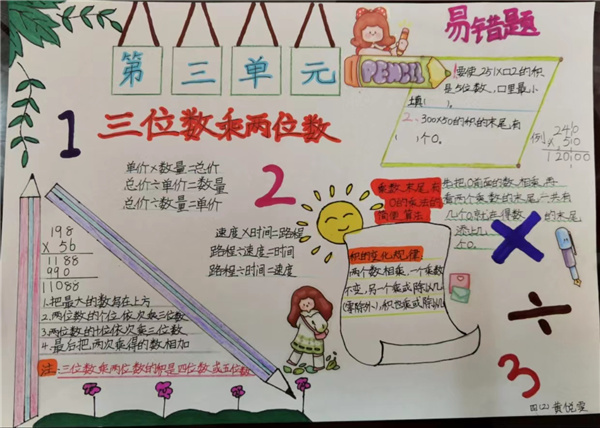 第三单元
易错题
PENCIL
1
三位数乘两位数
要使251×口2的积
是5位数,口里最小
填( )。
2、300×50的积的末尾有
( )个0。
例
240
× 510
120100
单价×数量=总价
总价÷单价=数量
总价÷数量=单价
2
速度×时间=路程
路程÷速度=时间
路程÷时间=速度
乘数末尾有
0的乘法的
简便算法
先把0前面的数相乘,再
看两个乘数的末尾一共有
几个0,就在得数的末尾
添上几
个0。
×
÷
3
积的变化规律
两个数相乘,一个乘数
不变,另一个乘或除以几
(零除外),积也乘或除以几
198
× 56
1188
990
11088
1.把最大的数写在上方
2.两位数的个位依次乘三位数
3.两位数的十位依次乘三位数
4.最后把两次乘得的数相加
注:三位数乘两位数的积是四位数或五位数
四(2) 黄悦雯